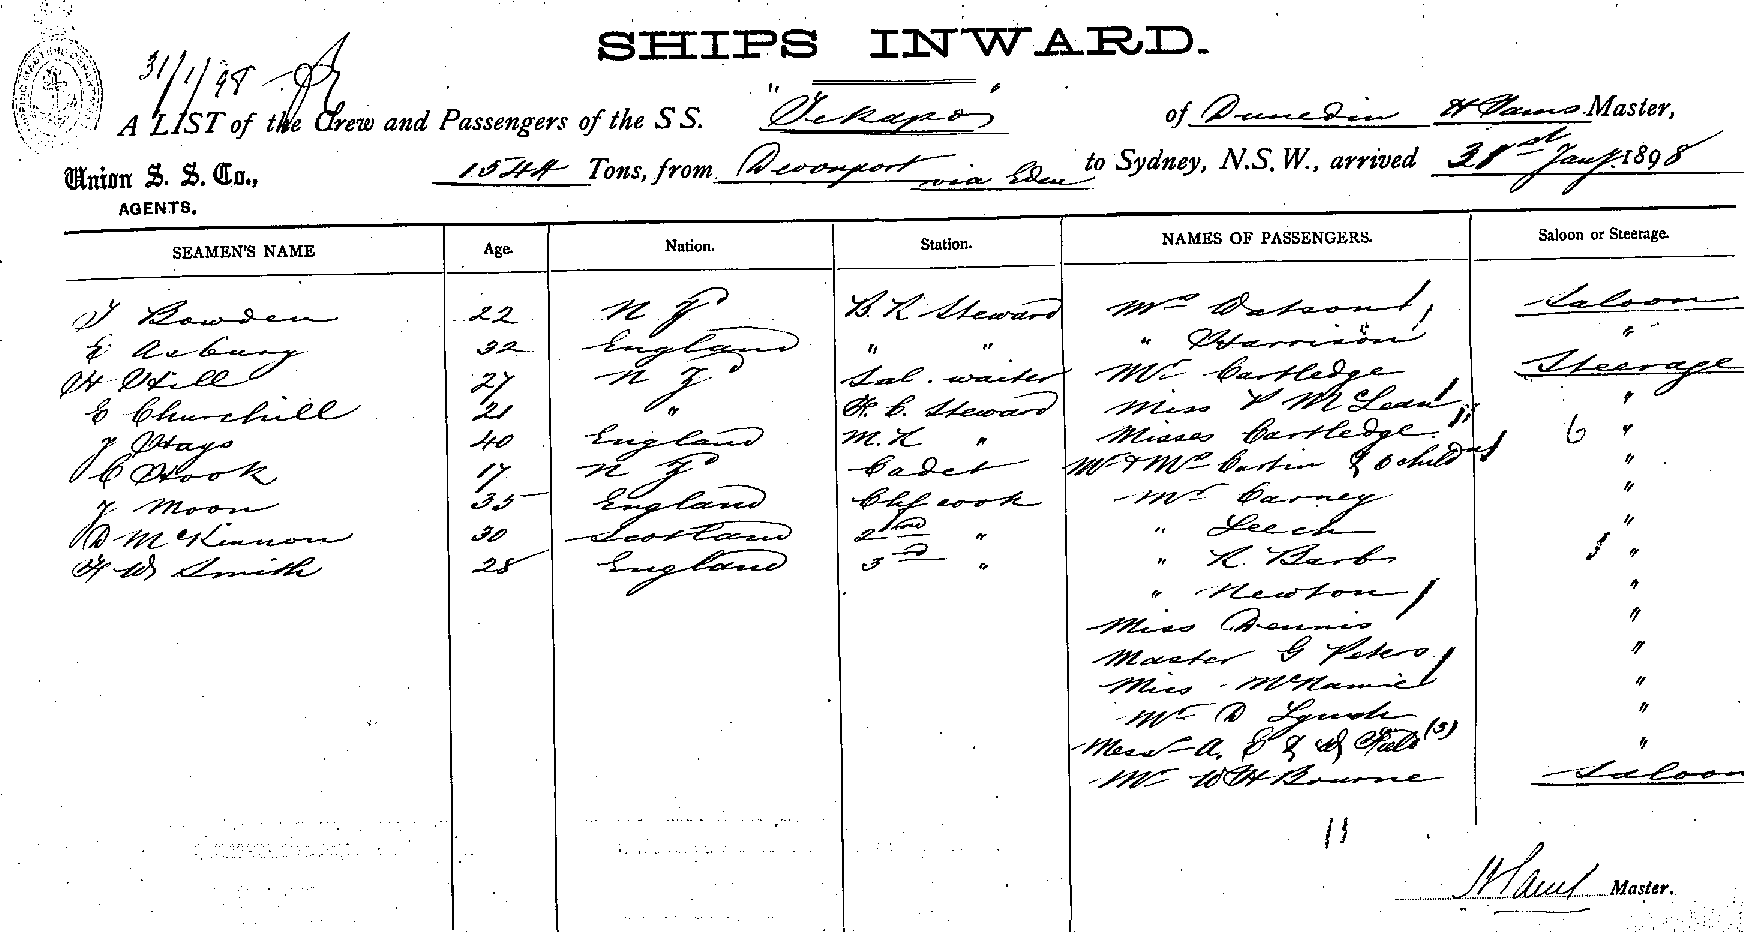 SHIPS INWARD.
31/1/98
A LIST of the Crew and Passengers of the S S. "Tekapo" of Dunedin Master,
Union S. S. Co., 1544 Tons, from Devonport via Eden to Sydney, N.S.W., arrived 31st Jany. 1898
AGENTS.
SEAMEN'S NAME Age. Nation. Station. NAMES OF PASSENGERS. Saloon or Steerage.
Bowden 22 N Z B. R Steward Mrs Watson Saloon
E Asbury 32 England " " " Harrison "
H Hill 27 N Z Sal. waiter Mr Cartledge Steerage
E Churchill 21 " F. C. Steward Miss P McLean "
J Hays 40 England M. R " Misses Cartledge 6 "
C Hook 17 N Z Cadet Mr & Mrs & child "
J Moon 35 England Chf cook Mr Carney "
D McKinnon 30 Scotland 2nd " " Leech "
F W Smith 28 England 3rd " " R. Barb "
" Newton "
Miss Dennis "
Master G Peters "
Miss McNamie "
Mr D Lynch "
Messrs A. E & W (3) "
Mr W H Bourne Saloon
11
Master.